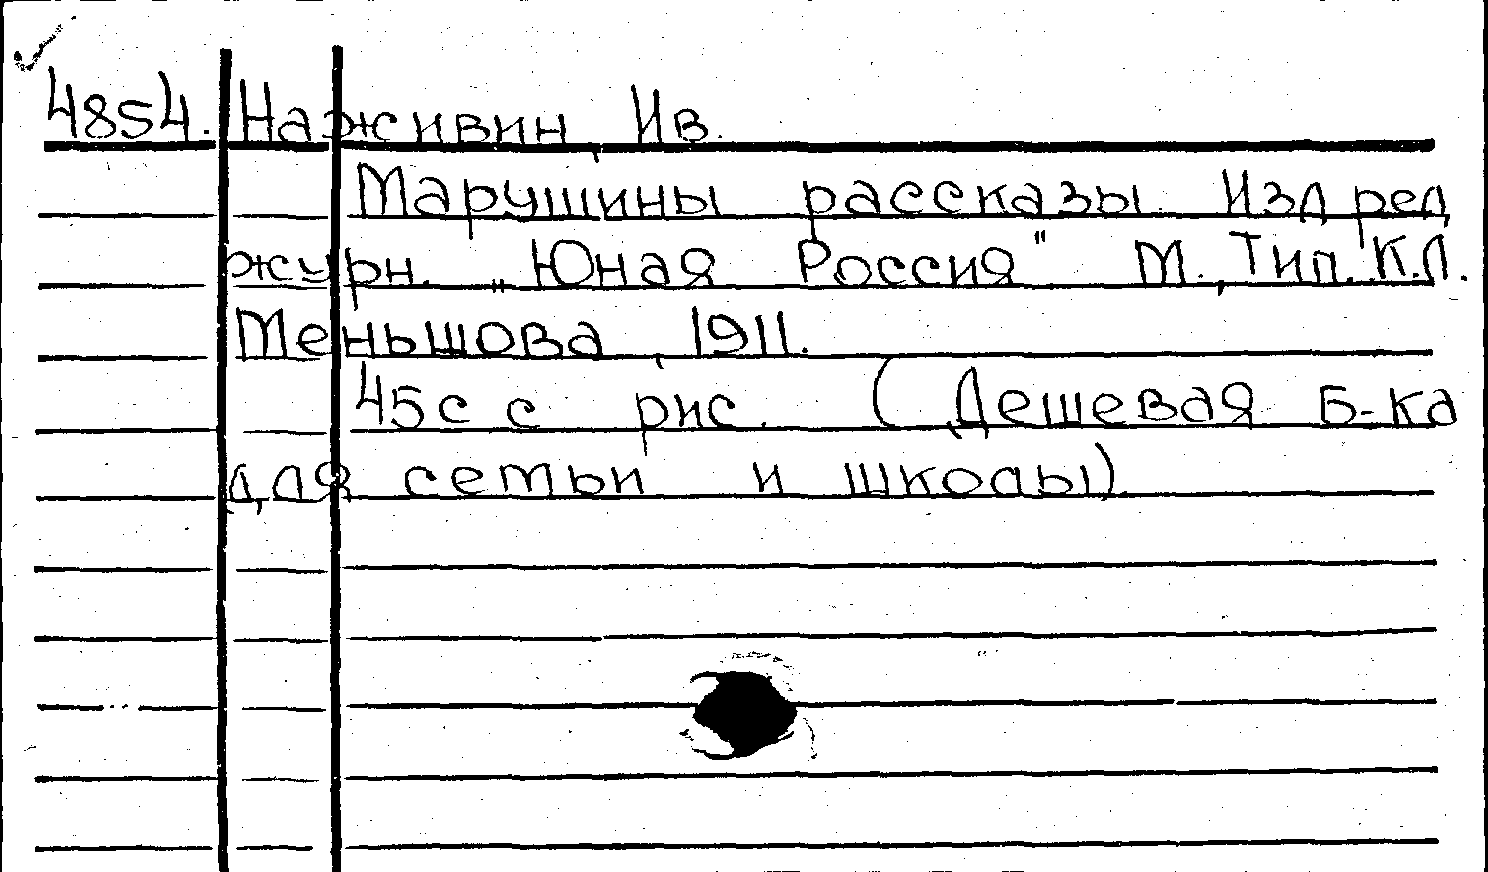 4854. Наживин, Ив.
Марушины рассказы. Изд. ред.
журн. „Юная Россия" М., Тип. К.Л.
Меньшова, 1911.
45с с рис. (Дешевая б-ка
для семьи и школы)